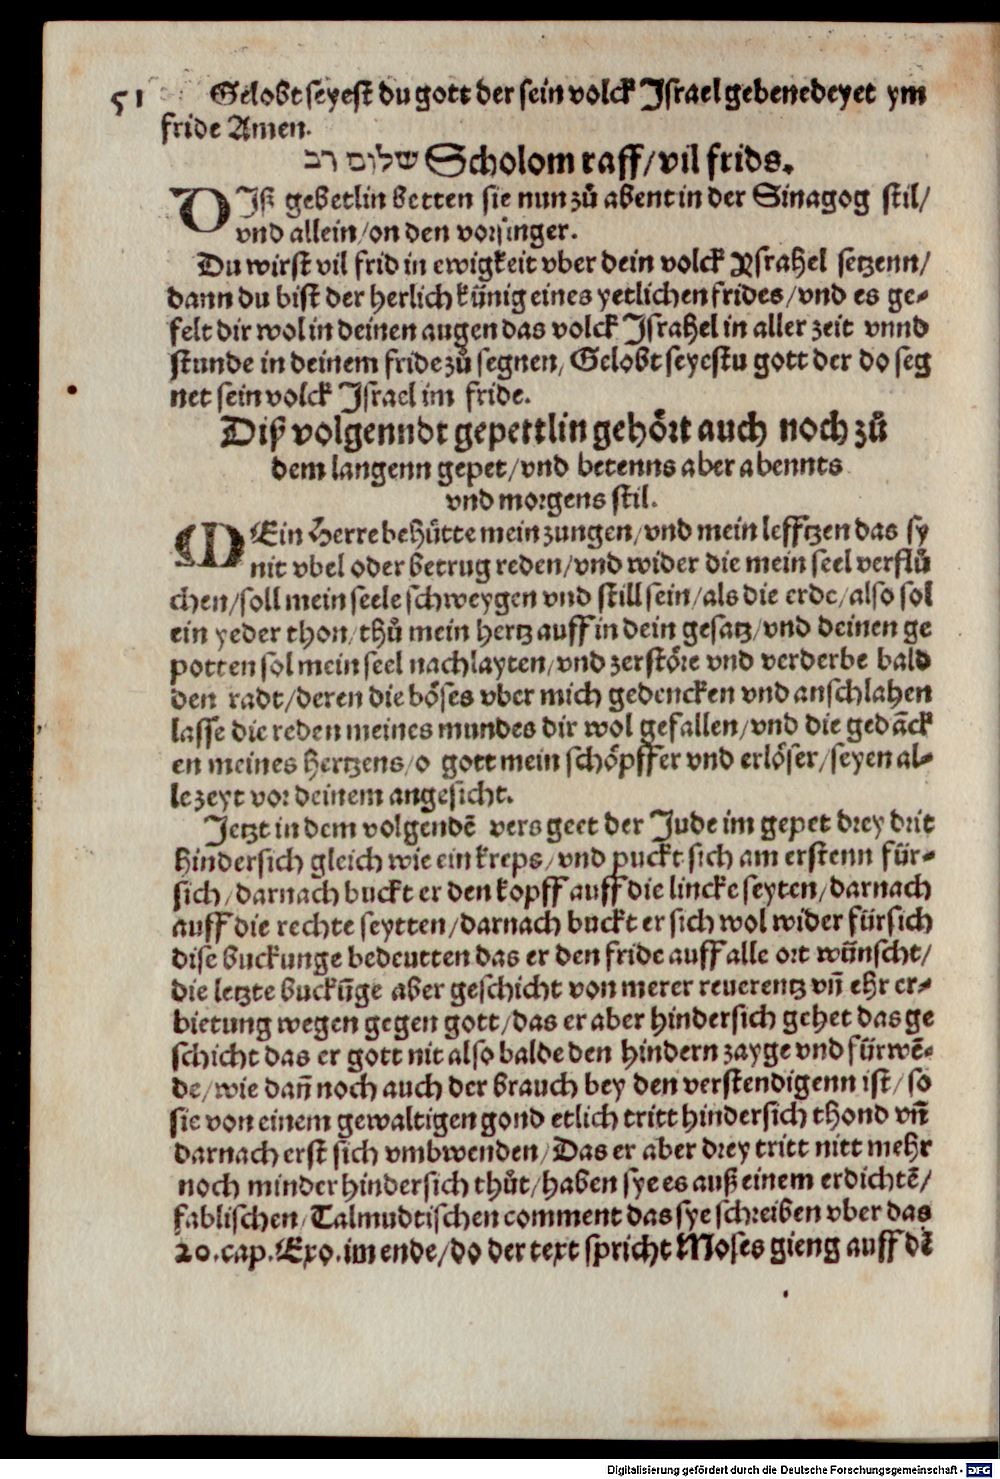 51 Gelobt seyest du gott der sein volck Israel gebenedeyet ym
fride Amen.
שלום רב Scholom raff/vil frids.
DIß gebetlin betten sie nun zů abent in der Sinagog stil/
vnd allein/on den vorsinger.
Du wirst vil frid in ewigkeit vber dein volck Ysrahel setzenn/
dann du bist der herlich künig eines yetlichen frides/vnd es ge-
felt dir wol in deinen augen das volck Israhel in aller zeit vnnd
stunde in deinem fride zů segnen/Gelobt seyestu gott der do seg
net sein volck Israel im fride.
Diß volgenndt gepettlin gehört auch noch zů
dem langenn gepet/vnd betenns aber abennts
vnd morgens stil.
MEin Herre behůtte mein zungen/vnd mein lefftzen das sy
nit vbel oder betrug reden/vnd wider die mein seel verflů
chen/soll mein seele schweygen vnd still sein/als die erde/also sol
ein yeder thon/thů mein hertz auff in dein gesatz/vnd deinen ge
potten sol mein seel nachlayten/vnd zerstöre vnd verderbe bald
den radt/deren die böses vber mich gedencken vnd anschlahen
lasse die reden meines mundes dir wol gefallen/vnd die gedāck
en meines hertzens/o gott mein schöpffer vnd erlöser/seyen al-
le zeyt vor deinem angesicht.
Jetzt in dem volgendē vers geet der Jude im gepet drey drit
hindersich gleich wie ein kreps/vnd puckt sich am erstenn für-
sich/darnach buckt er den kopff auff die lincke seyten/darnach
auff die rechte seytten/darnach buckt er sich wol wider fürsich
dise buckunge bedeutten das er den fride auff alle ort wünscht/
die letzte buckūge aber geschicht von merer reuerentz vñ ehr er-
bietung wegen gegen gott/das er aber hindersich gehet das ge
schicht das er gott nit also balde den hindern zayge vnd fürwē-
de/wie dañ noch auch der brauch bey den verstendigenn ist/so
sie von einem gewaltigen gond etlich tritt hindersich thond vñ
darnach erst sich vmbwenden/Das er aber drey tritt nitt mehr
noch minder hindersich thůt/haben sye es auß einem erdichtē/
fablischen/Talmudtischen comment das sye schreiben vber das
20.cap.Exo.im ende/do der text spricht Moses gieng auff dē
Digitalisierung gefördert durch die Deutsche Forschungsgemeinschaft - DFG